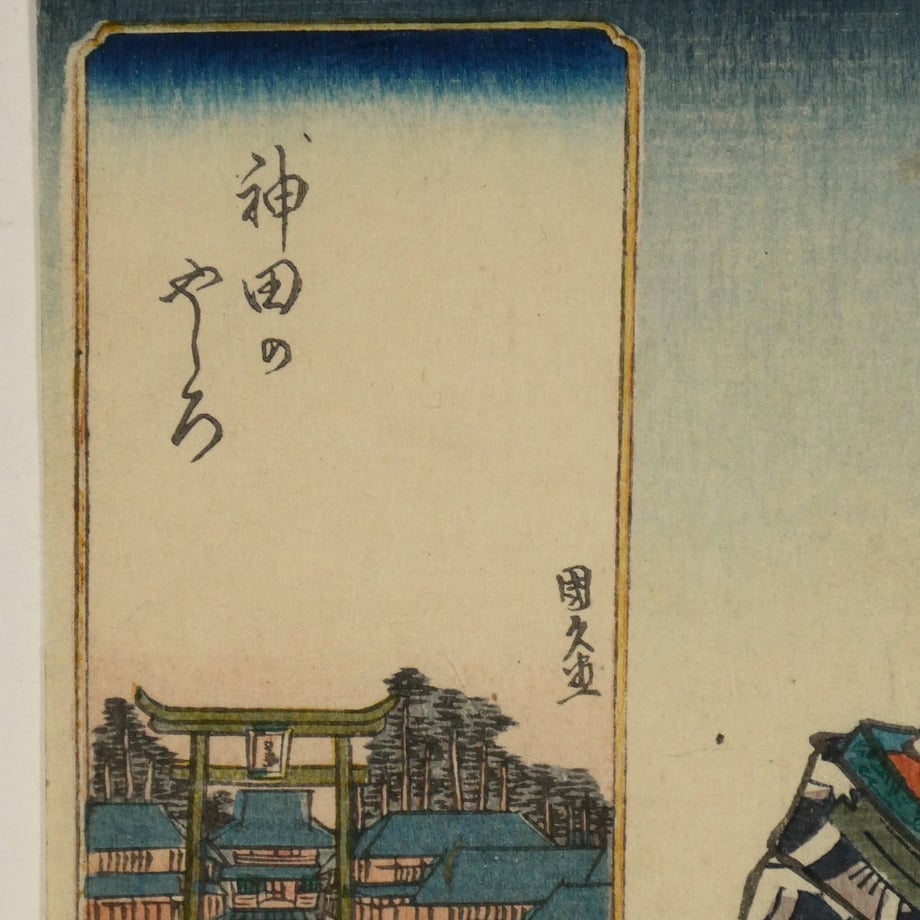 神田の
やしろ
國久画